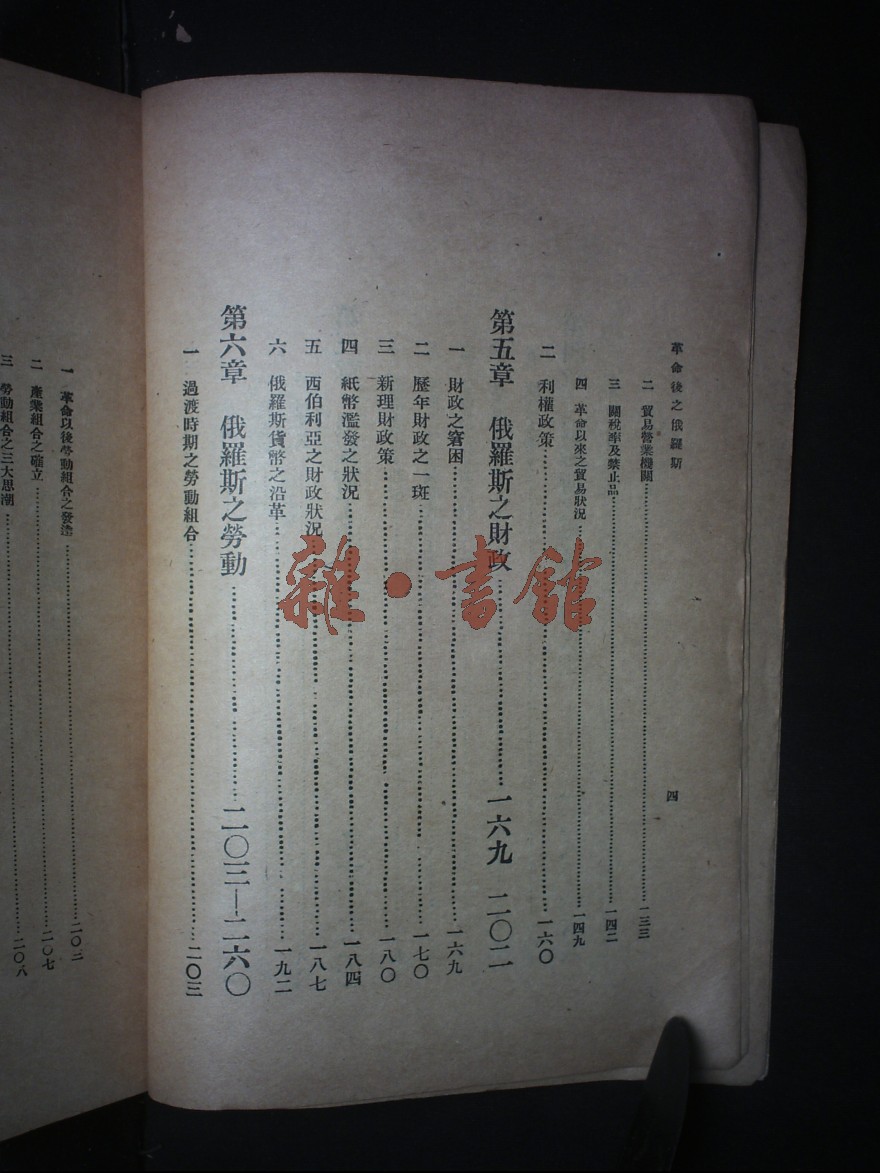 革命後之俄羅斯
四
二 貿易營業機關 一三三
三 關稅率及禁止品 一四二
四 革命以來之貿易狀況 一四九
二 利權政策 一六〇
第五章 俄羅斯之財政 一六九 二〇二
一 財政之窘困 一六九
二 歷年財政之一斑 一七〇
三 新理財政策 一八〇
四 紙幣濫發之狀況 一八四
五 西伯利亞之財政狀況 一八七
六 俄羅斯貨幣之沿革 一九二
第六章 俄羅斯之勞動 二〇三—二六〇
一 過渡時期之勞動組合 二〇三
一 革命以後勞動組合之發達 二〇三
二 產業組合之確立 二〇七
三 勞動組合之三大思潮 二〇八
雜·書館